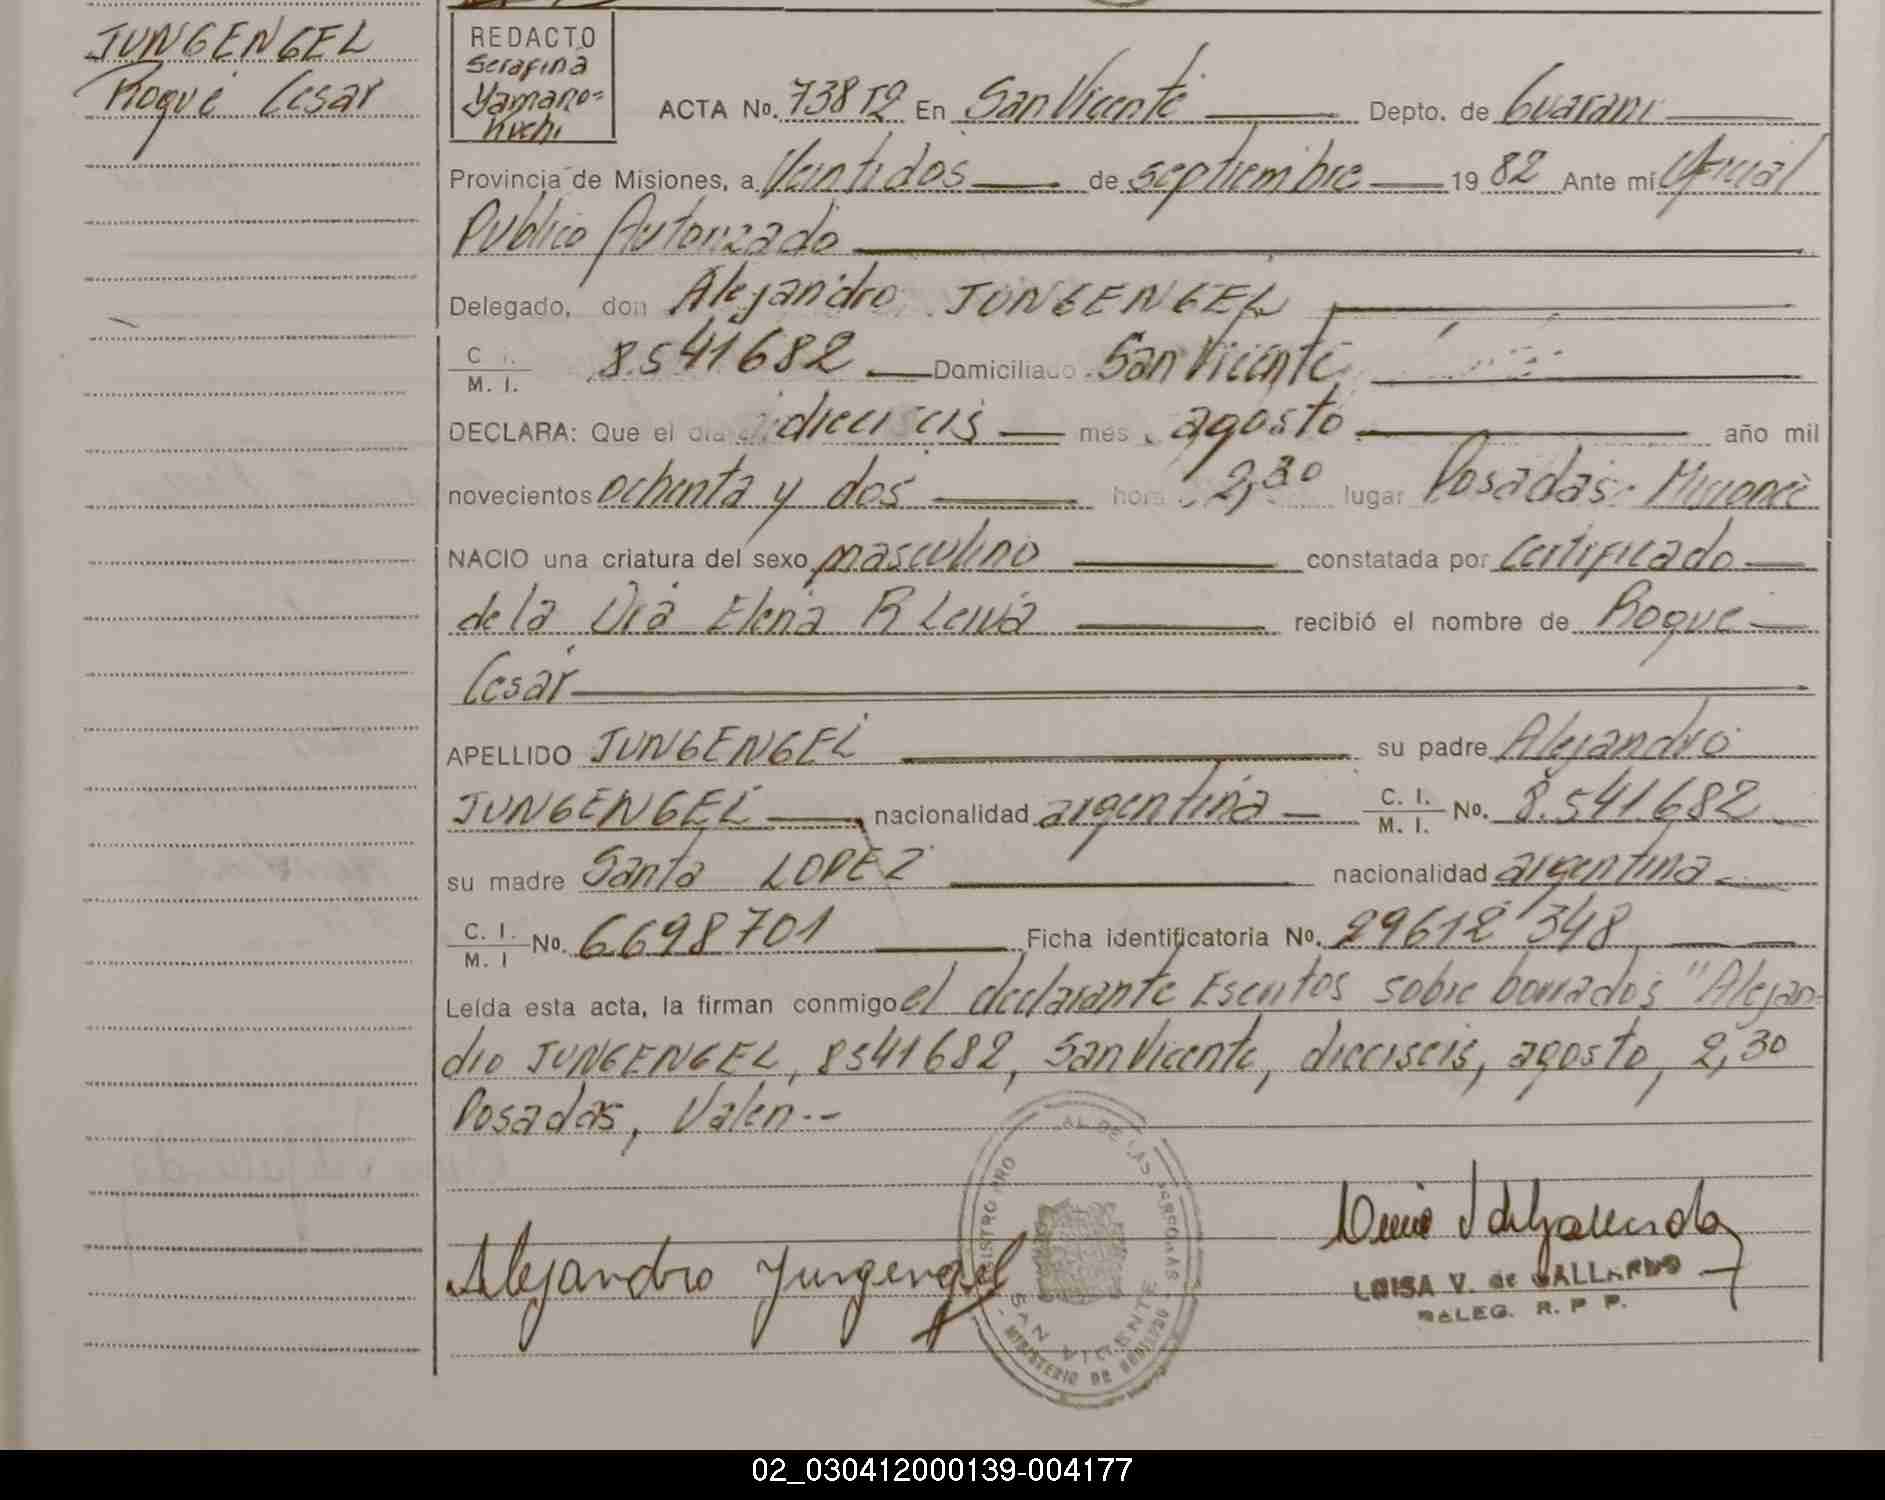 JUNGENGEL
Roque Cesar
REDACTO
Serafina
Yamano=
Kuchi
ACTA No. 738 T2 En San Vicente Depto. de Guarani
Provincia de Misiones, a Veintidos de septiembre 1982 Ante mí Oficial
Publico Autorizado
Delegado, don Alejandro JUNGENGEL
C. I.
M. I. 8.541682 Domiciliado San Vicente
DECLARA: Que el día dieciseis mes agosto año mil
novecientos ochenta y dos hora 2,30 lugar Posadas - Misiones
NACIO una criatura del sexo masculino constatada por certificado
de la Dra Elena R recibió el nombre de Roque
Cesar
APELLIDO JUNGENGEL su padre Alejandro
JUNGENGEL nacionalidad argentina C. I.
M. I. No. 8.541.682
su madre Santa LOPEZ nacionalidad argentina
C. I.
M. I No. 6698701 Ficha identificatoria No. 29612348
Leída esta acta, la firman conmigo el declarante Escritos sobre borrados "Alejan-
dro JUNGENGEL, 8541682, San Vicente, dieciseis, agosto, 2,30
Posadas, Valen--
Alejandro Jungengel
LUISA V. de GALLARDO
DELEG. R. P P.
REGISTRO PRO AL DE LAS PERSONAS
SAN VICENTE
MINISTERIO DE GOBIERNO
02_030412000139-004177